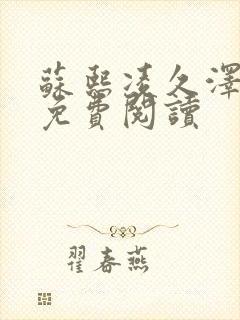 蘇熙凌久澤
免費閱讀
翟春燕